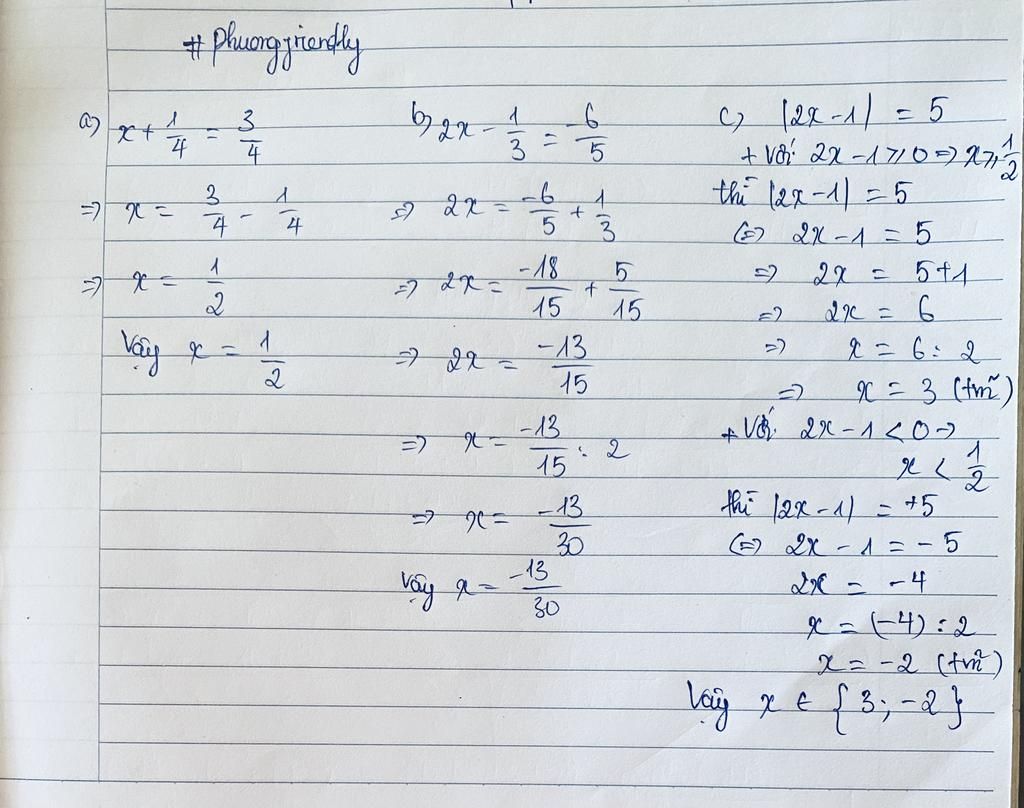 # Phuongfriendly
a) x + 1/4 = 3/4
=> x = 3/4 - 1/4
=> x = 1/2
Vậy x = 1/2
b) 2x - 1/3 = -6/5
=> 2x = -6/5 + 1/3
=> 2x = -18/15 + 5/15
=> 2x = -13/15
=> x = -13/15 : 2
=> x = -13/30
Vậy x = -13/30
c) |2x - 1| = 5
+ Với: 2x - 1 ⩾ 0 => x ⩾ 1/2
thì |2x - 1| = 5
(=) 2x - 1 = 5
=> 2x = 5+1
=> 2x = 6
=> x = 6 : 2
=> x = 3 (tmã)
+ Với 2x - 1 < 0 ->
x < 1/2
thì |2x - 1| = +5
(=) 2x - 1 = - 5
2x = -4
x = (-4) : 2
x = -2 (tmã)
Vậy x ∈ {3; -2}